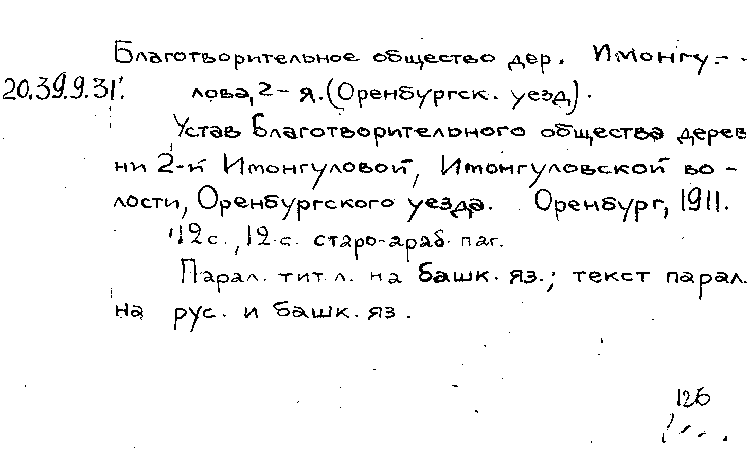 Благотворительное общество дер. Имонгу-
20.39.9.31. лова, 2-я. (Оренбургск. уезд).
Устав Благотворительного общества дерев
ни 2-й Имонгуловой, Имонгуловской во-
лости, Оренбургского уезда. Оренбург, 1911.
12 с., 12 с. старо-араб. паг.
Парал. тит. л. на башк. яз.; текст парал.
на рус. и башк. яз.
126